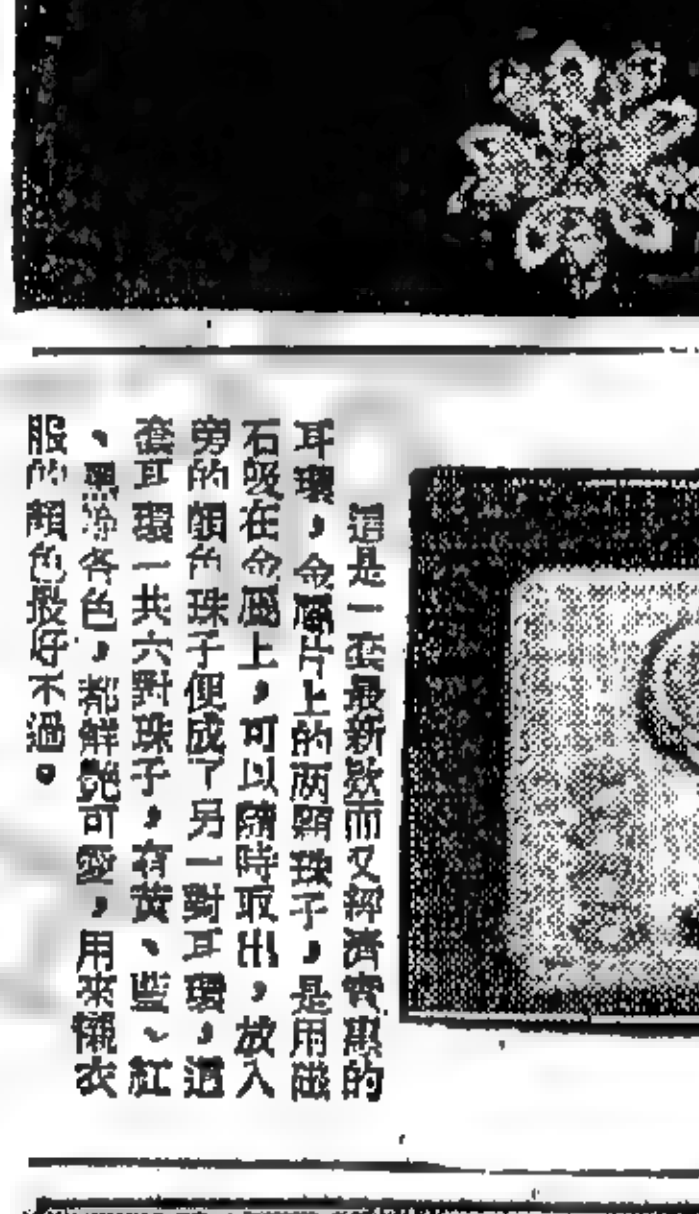 這是一套最新款而又經濟實惠的
耳環，金屬片上的两顆珠子，是用磁
石吸在金屬上，可以隨時取出，放入
旁的顏色珠子便成了另一對耳環，這
套耳環一共六對珠子，有黃、藍、紅
、黑等各色，都鮮艷可愛，用來襯衣
服的顏色最好不過。